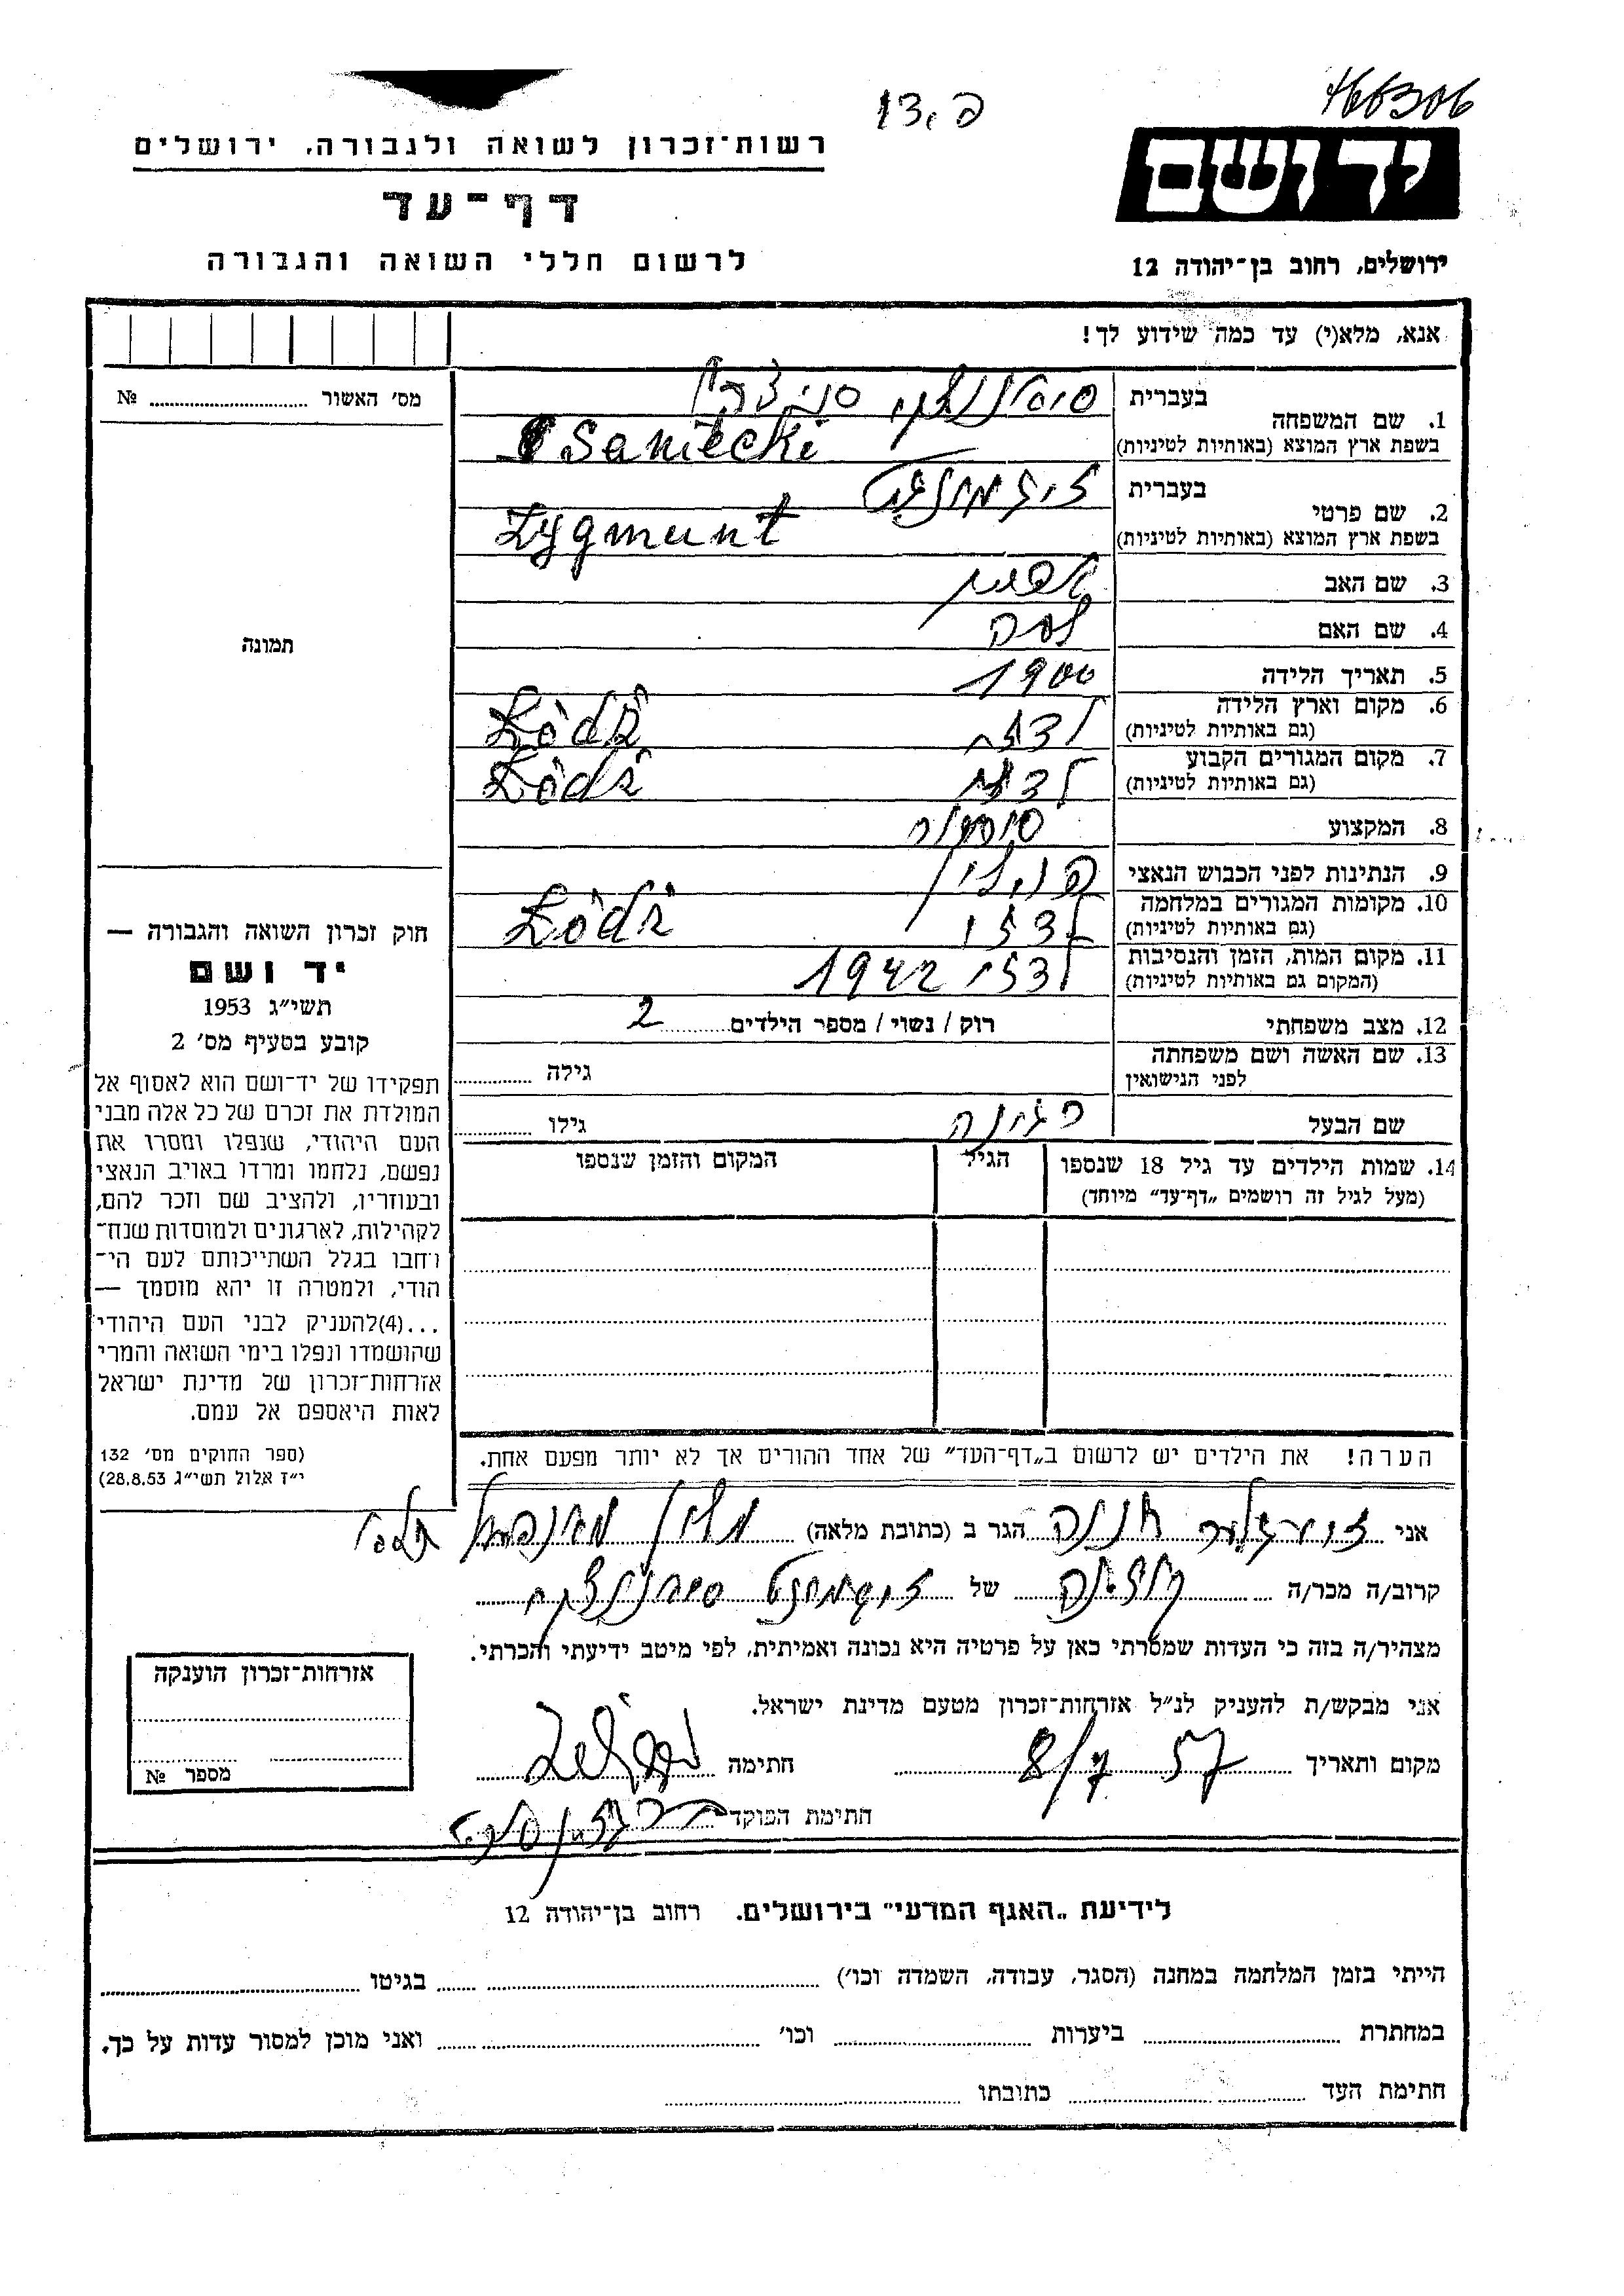 466306
פ. 13
ידושם
רשות־זכרון לשואה ולגבורה, ירושלים
דף־עד
לרשום חללי השואה והגבורה
ירושלים, רחוב בן־יהודה 12
אנא, מלא(י) עד כמה שידוע לך!
מס׳ האשור № 
1. שם המשפחה
בעברית
בשפת ארץ המוצא (באותיות לטיניות)
Saniecki
2. שם פרטי
בעברית זיגמונט
בשפת ארץ המוצא (באותיות לטיניות)
Zygmunt
3. שם האב
4. שם האם
5. תאריך הלידה 1900
6. מקום וארץ הלידה
(גם באותיות לטיניות)
Łódź
7. מקום המגורים הקבוע
(גם באותיות לטיניות)
Łódź
8. המקצוע סוחר
9. הנתינות לפני הכבוש הנאצי פולין
10. מקומות המגורים במלחמה
(גם באותיות לטיניות) לודז׳ Łódź
11. מקום המות, הזמן והנסיבות
(המקום גם באותיות לטיניות)
1942
12. מצב משפחתי רוק / נשוי / מספר הילדים 2
13. שם האשה ושם משפחתה
לפני הנישואין
גילה
שם הבעל
גילו
14. שמות הילדים עד גיל 18 שנספו
(מעל לגיל זה רושמים „דף־עד״ מיוחד)
הגיל
המקום והזמן שנספו
הערה! את הילדים יש לרשום ב„דף־העד״ של אחד ההורים אך לא יותר מפעם אחת.
תמונה
חוק זכרון השואה והגבורה —
יד ושם
תשי״ג 1953
קובע בסעיף מס׳ 2
תפקידו של יד־ושם הוא לאסוף אל
המולדת את זכרם של כל אלה מבני
העם היהודי, שנפלו ומסרו את
נפשם, נלחמו ומרדו באויב הנאצי
ובעוזריו, ולהציב שם וזכר להם,
לקהילות, לארגונים ולמוסדות שנח־
רחבו בגלל השתייכותם לעם הי־
הודי, ולמטרה זו יהא מוסמך —
...(4)להעניק לבני העם היהודי
שהושמדו ונפלו בימי השואה והמרי
אזרחות־זכרון של מדינת ישראל
לאות היאספם אל עמם.
(ספר החוקים מס׳ 132
י״ז אלול תשי״ג 28.8.53)
אני חנה הגר ב (כתובת מלאה)
קרוב/ה מכר/ה של זיגמונט
מצהיר/ה בזה כי העדות שמסרתי כאן על פרטיה היא נכונה ואמיתית, לפי מיטב ידיעתי והכרתי.
אני מבקש/ת להעניק לנ״ל אזרחות־זכרון מטעם מדינת ישראל.
מקום ותאריך 8/7 57 חתימה
חתימת הפוקד
אזרחות־זכרון הוענקה
מספר №
לידיעת „האגף המדעי״ בירושלים. רחוב בן־יהודה 12
הייתי בזמן המלחמה במחנה (הסגר, עבודה, השמדה וכו׳) בגיטו
במחתרת ביערות וכו׳ ואני מוכן למסור עדות על כך.
חתימת העד כתובתו